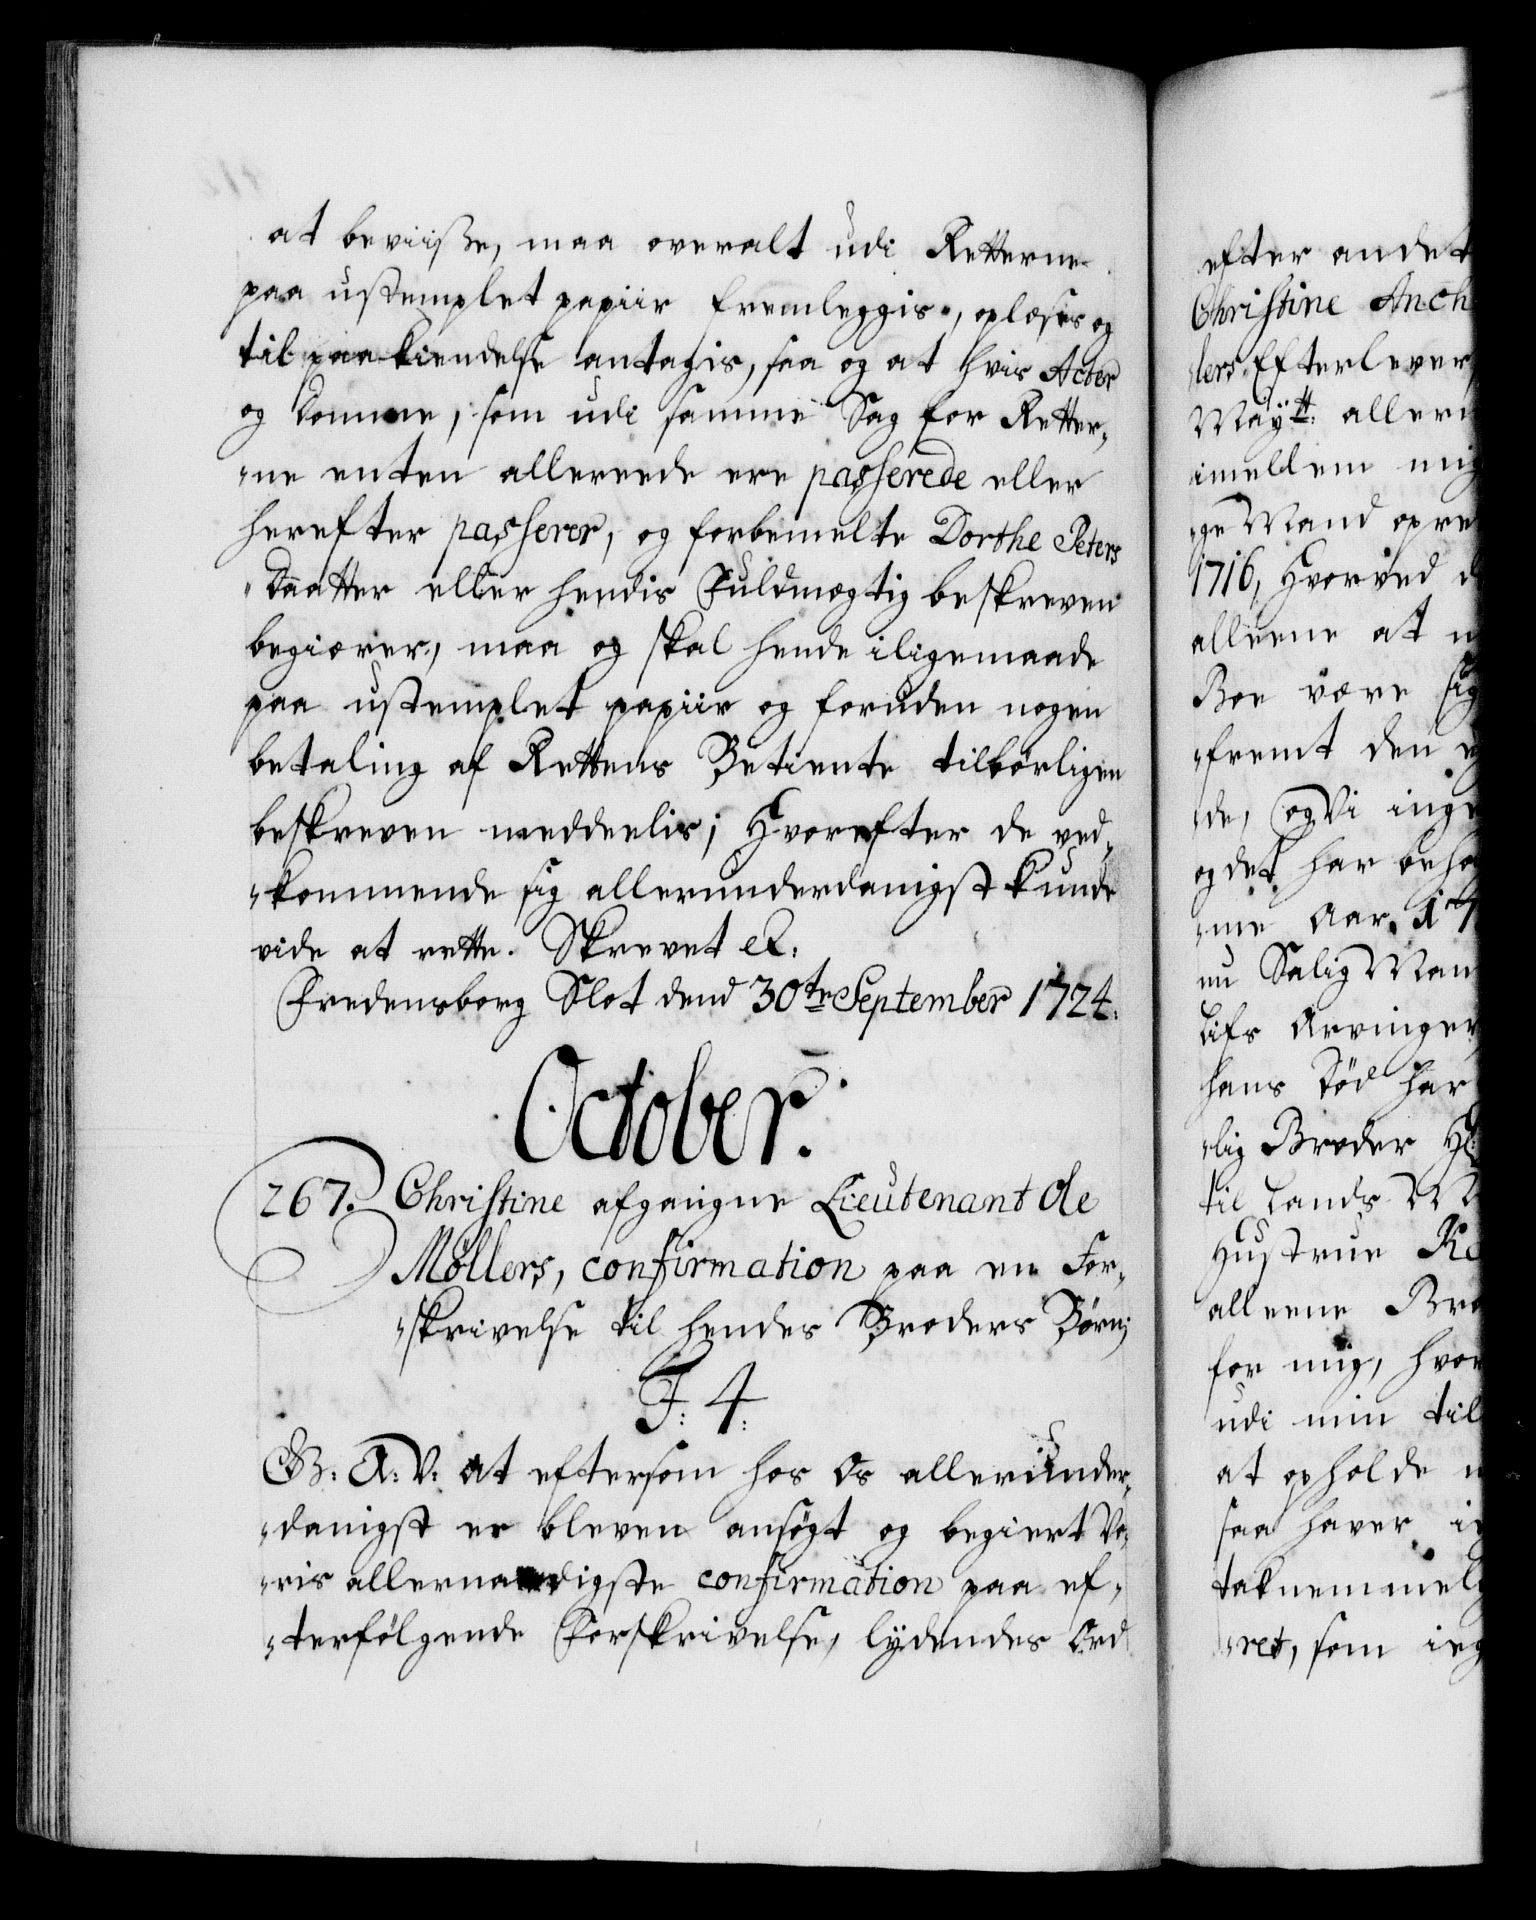 at beviiße, maa overalt udi Retterne
paa ustemplet papiir fremleggis, oplæses og
til paakiendelse antagis, saa og at hvis Acter
og Domme, som udi samme Sag for Retter-
-ne enten allereede ere passerede eller
herefter passerer, og forbemelte Dorthe Peters
-Daatter eller hendis Fuldmægtig beskreven
begiærer, maa og skal hende iligemaade
paa ustemplet papiir og foruden nogen
betaling af Rettens Betiente tilbørligen
beskreven meddeelis; Hvorefter de ved-
-kommende sig allerunderdanigst kunde
vide at rette. Skrevet &:
Fredensborg Slot dend 30te September 1724.
October.
267. Christine afgangne Lieutenant de
Møllers, confirmation paa en For-
-skrivelse til hendes Broders Børn;
F: 4:
G: A: V: at eftersom hos Os allerunder-
-danigst er bleven ansøgt og begiert Vo-
-ris allernaadigste confirmation paa ef-
-terfølgende Forskrivelse, lydendes Ord
efter andet
Christine Anch
lers Efterlever
Maytt: allern
imellem mig
-ge Mand opre
1716, Hvorved d
alleene at n
Boe være sig
-fremt den e
-de, og Vi inge
og det har beha
-me Aar. 17
nu Salig Man
Lifs Arvinger
hans Død har
-lig Broder H:
til Lands M
Hustrue Ka
alleene Bro
for mig, hvor
udi min til
at opholde m
saa haver ie
taknemmelig
-ret, som ieg